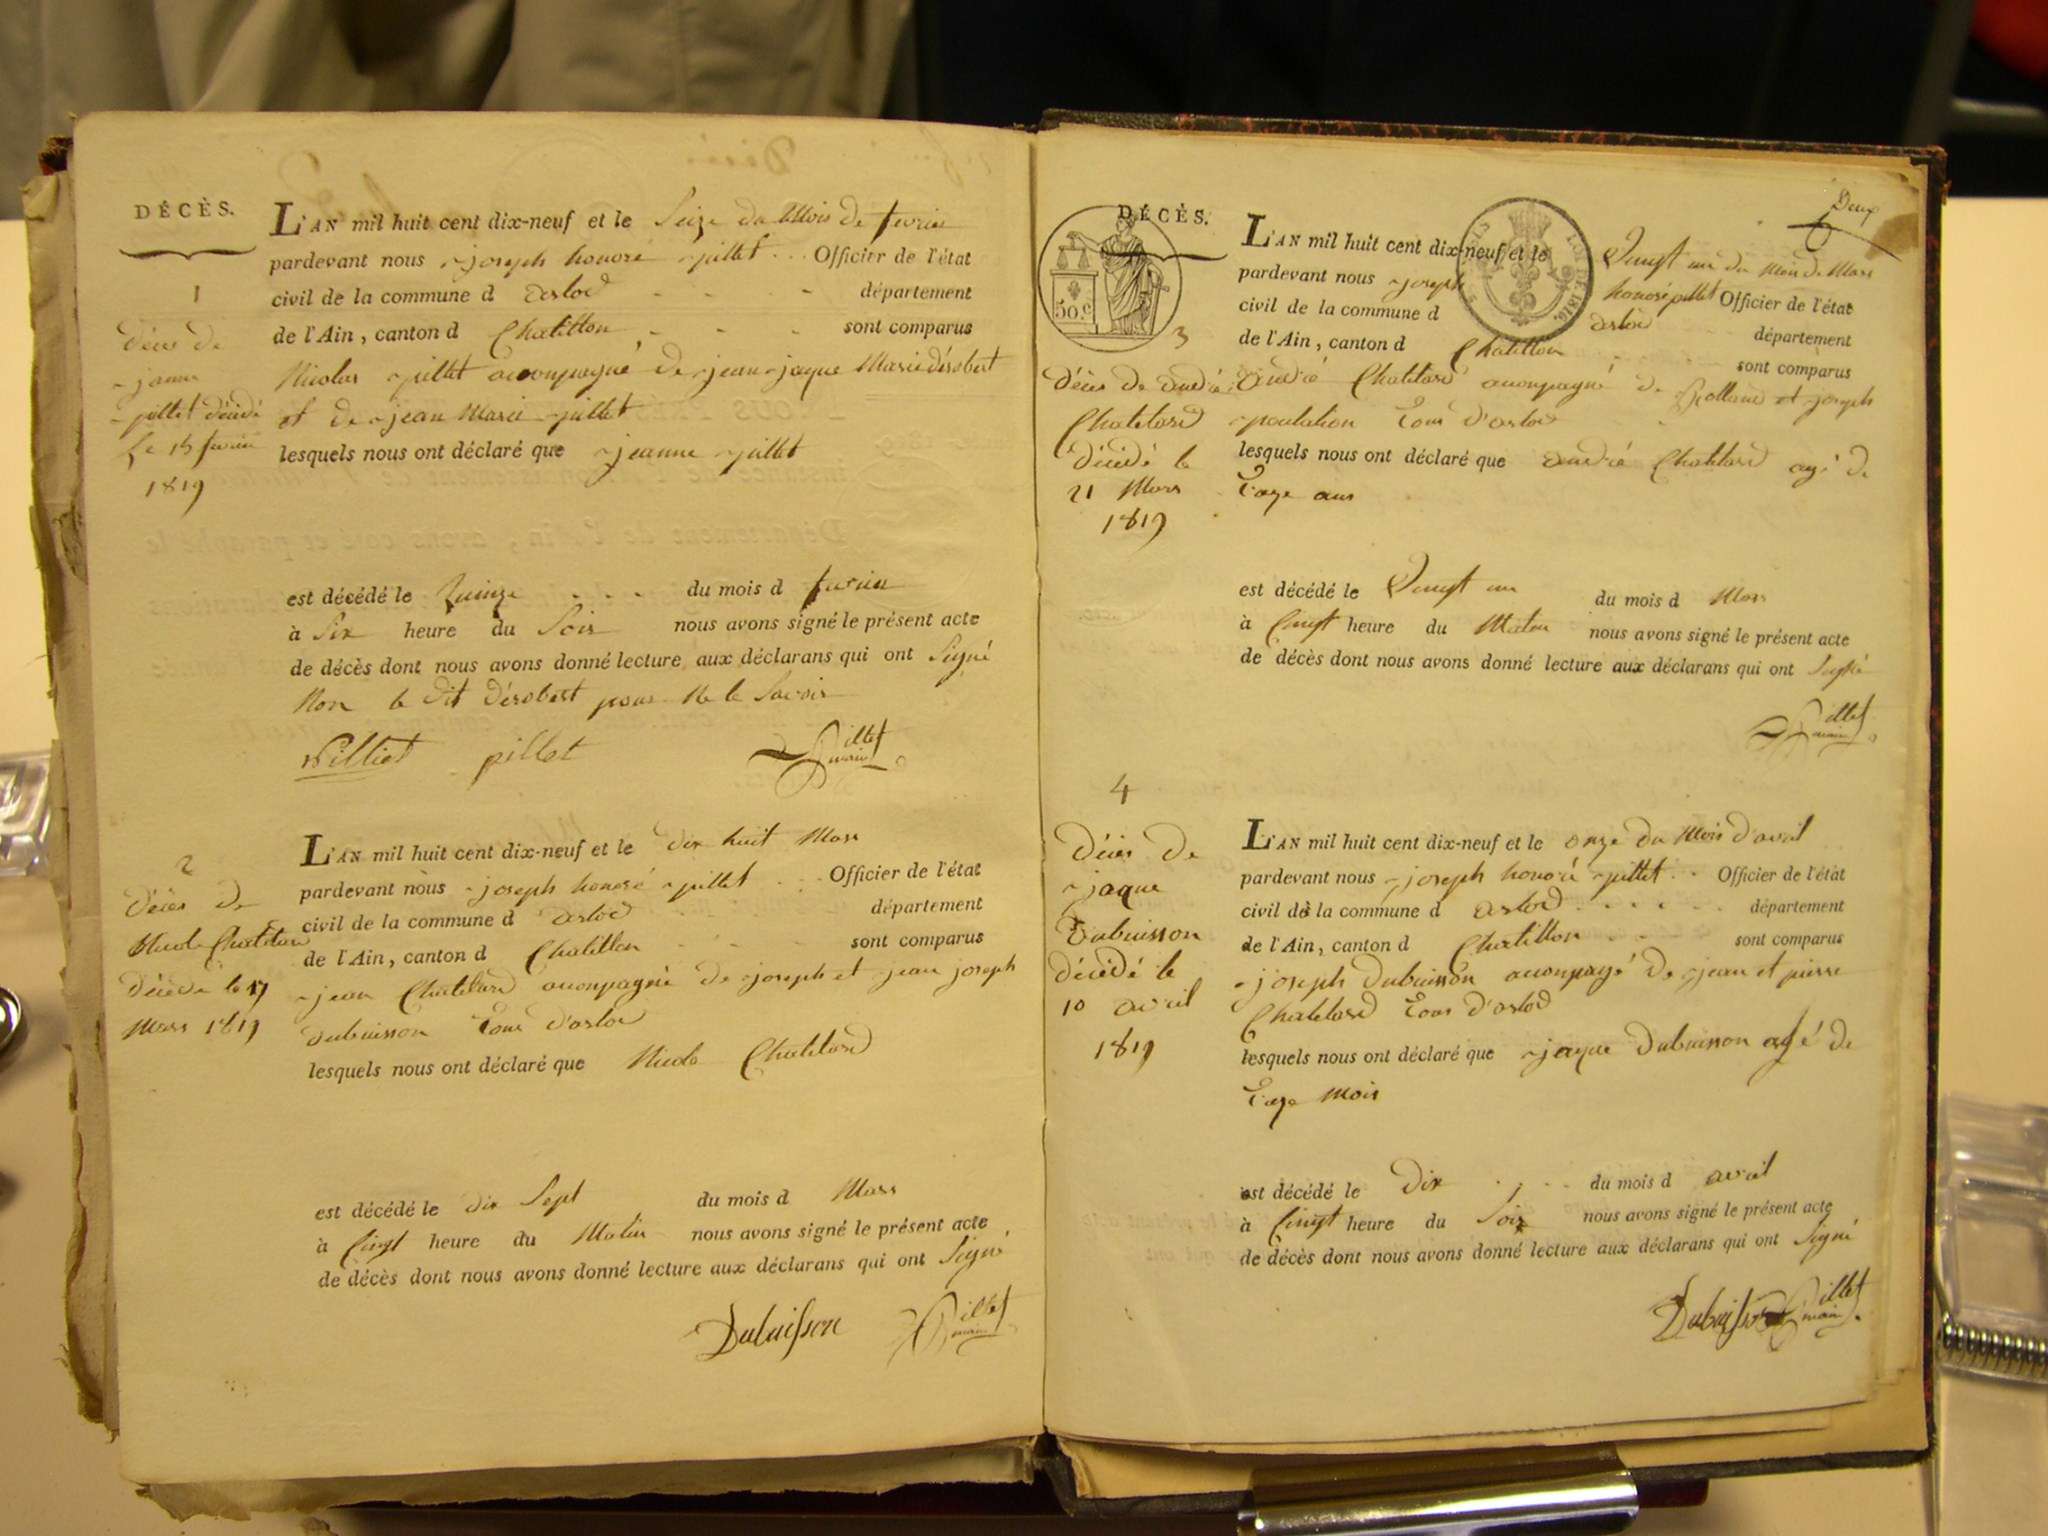 DÉCÈS.
1
décès de
jeanne
pillet décédé
le 15 fevrier
1819
L'AN mil huit cent dix-neuf et le Seize du Mois de fevrier
pardevant nous joseph honoré pillet Officier de l'état
civil de la commune d arlod département
de l'Ain, canton d Chatillon sont comparus
Nicolas pillet acconpagné de jean jaque Marie dérobert
et de jean Marie pillet
lesquels nous ont déclaré que jeanne pillet
est décédé le Quinze du mois d fevrier
à Six heure du Soir nous avons signé le présent acte
de décès dont nous avons donné lecture aux déclarans qui ont Signé
Non le dit dérobert pour Ne le Savoir
pillet pillet Pillet maire
2
décès de
Nicola Chatelard
décédé le 17
Mars 1819
L'AN mil huit cent dix-neuf et le dix huit Mars
pardevant nous joseph honoré pillet Officier de l'état
civil de la commune d arlod département
de l'Ain, canton d Chatillon sont comparus
jean Chatelard acconpagné de joseph et jean joseph
dubuisson Tous d'arlod
lesquels nous ont déclaré que Nicola Chatelard
est décédé le dix Sept du mois d Mars
à Cinqt heure du Matin nous avons signé le présent acte
de décès dont nous avons donné lecture aux déclarans qui ont Signé
Dubuisson Pillet maire
Deux
DÉCÈS.
50.c
1816.
3
décès de andré
Chatelard
décédé le
21 Mars
1819
L'AN mil huit cent dix-neuf et le Vingt un du Mois de Mars
pardevant nous joseph honoré pillet Officier de l'état
civil de la commune d arlod département
de l'Ain, canton d Chatillon sont comparus
andré Chatelard aconpagné de Rolland et joseph
Tous d'arlod
lesquels nous ont déclaré que andré Chatelard agé de
Treze ans
est décédé le Vingt un du mois d Mars
à Cinqt heure du Matin nous avons signé le présent acte
de décès dont nous avons donné lecture aux déclarans qui ont Signé
Pillet maire
4
décès de
jaque
Dubuisson
décédé le
10 avril
1819
L'AN mil huit cent dix-neuf et le onze du Mois d'avril
pardevant nous joseph honoré pillet Officier de l'état
civil de la commune d arlod département
de l'Ain, canton d Chatillon sont comparus
joseph Dubuisson aconpagé de jean et pierre
Chatelard Tous d'arlod
lesquels nous ont déclaré que jaque Dubuisson agé de
Treze Mois
est décédé le Dix du mois d avril
à Cinqt heure du Soir nous avons signé le présent acte
de décès dont nous avons donné lecture aux déclarans qui ont Signé
Dubuisson Pillet maire